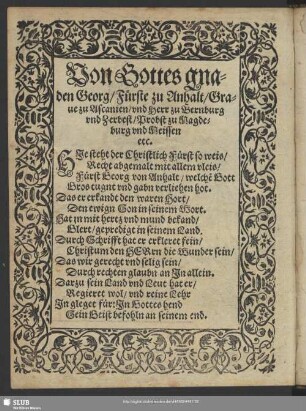 Von Gottes gna-
den Georg/ Fürste zu Anhalt/ Gra-
ue zu Ascanien/ vnd Herr zu Bernburg
vnd Zerbest/ Probst zu Magde-
burg vnd Meissen
etc.
HIe steht der Christlich Fürst so weis/
Recht abgemalt mit allem vleis/
Fürst Georg von Anhalt/ welchē Gott
Gros tugnt vnd gabn verliehen hot.
Das er erkandt den waren Hort/
Den ewign Son in seinem Wort.
Hat jn mit hertz vnd mund bekand/
Glert/ gepredigt in seinem Land.
Durch Schrifft hat er erkleret fein/
Christum den HERrn die Wunder sein/
Das wir gerecht vnd selig sein/
Durch rechten glaubn an Jn allein.
Darzu sein Land vnd Leut hat er/
Regieret wol/ vnd reine Lehr
Jn gleget für: Jn Gottes hend
Sein Geist befohln an seinem end.
SLUB